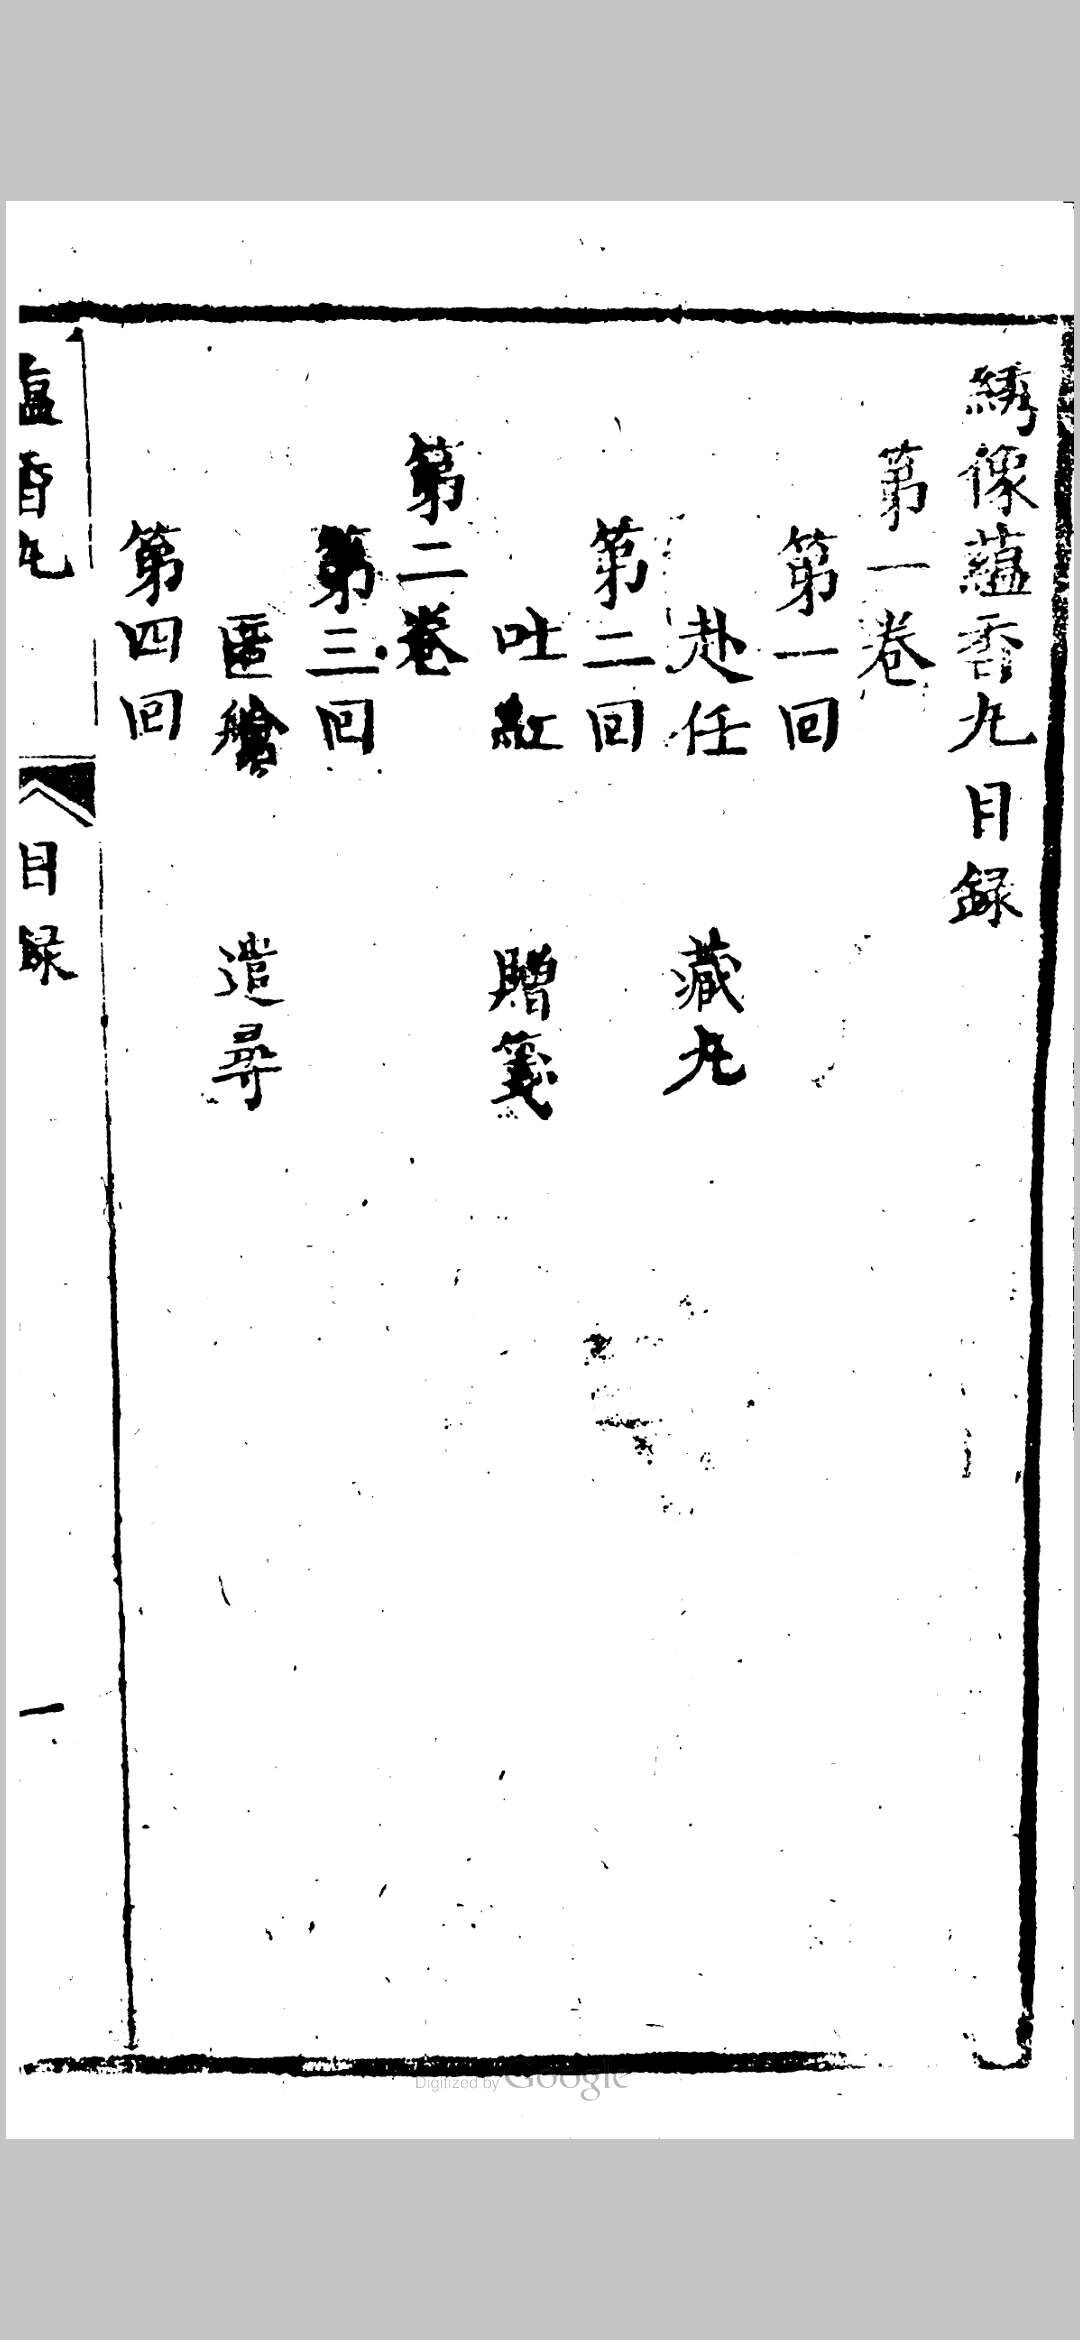 綉像蘊香丸目録
第一卷
第一回
赴任 藏丸
第二回
吐紅 贈箋
第二卷
第三回
匿 遣尋
第四回
蘊香丸
目録
一
Digitized by Google